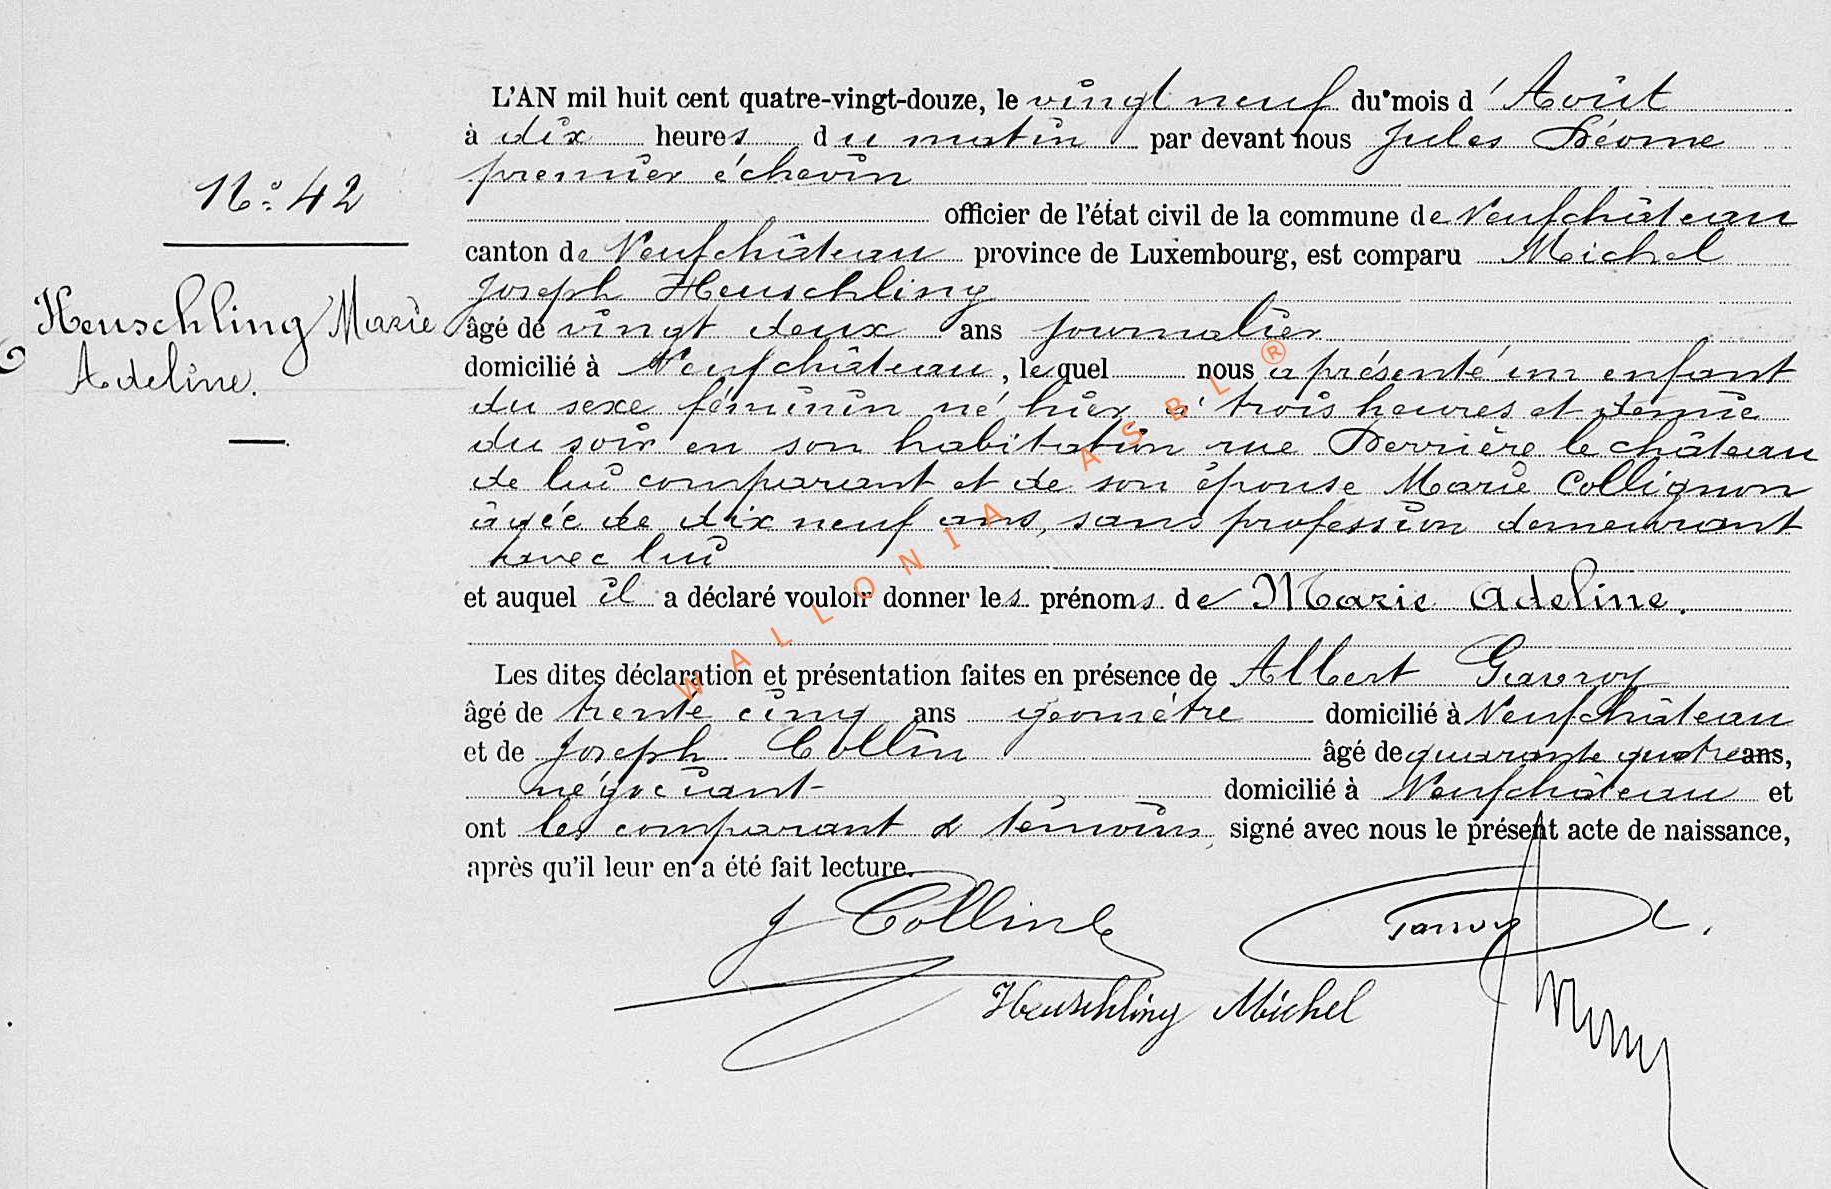 N° 42
Heuschling Marie
Adeline.
L'AN mil huit cent quatre-vingt-douze, le vingt neuf du mois d'Août
à dix heures du matin par devant nous Jules Déome
premier échevin
officier de l'état civil de la commune de Neufchâteau
canton de Neufchâteau province de Luxembourg, est comparu Michel
Joseph Heuschling
âgé de vingt deux ans journalier
domicilié à Neufchâteau, lequel nous a présenté un enfant
du sexe féminin né hier à trois heures et demie
du soir en son habitation rue Derrière le château
de lui comparant et de son épouse Marie Collignon
âgée de dix neuf ans, sans profession demeurant
avec lui
et auquel il a déclaré vouloir donner les prénoms de Marie Adeline.
Les dites déclaration et présentation faites en présence de Albert Gavroy
âgé de trente cinq ans géomètre domicilié à Neufchâteau
et de Joseph Collin âgé de quarante quatre ans,
négociant domicilié à Neufchâteau et
ont les comparant & témoins signé avec nous le présent acte de naissance,
après qu'il leur en a été fait lecture.
J Collin
Gavroy
Heuschling Michel
WALLONIA ASBL ®